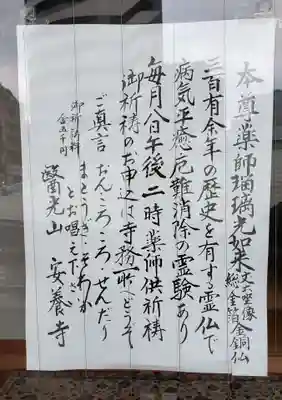 本尊薬師瑠璃光如来 丈六坐像
総金箔金銅仏
三百有余年の歴史を有する霊仏で
病気平癒・厄難消除の霊験あり
毎月八日午後二時薬師供祈祷
御祈祷のお申込は寺務所へどうぞ
ご真言 おん・ころ・ころ・せんだり
まとうぎ・そわか
とお唱え下さい
御祈祷料
金五千円
醫光山 安養寺